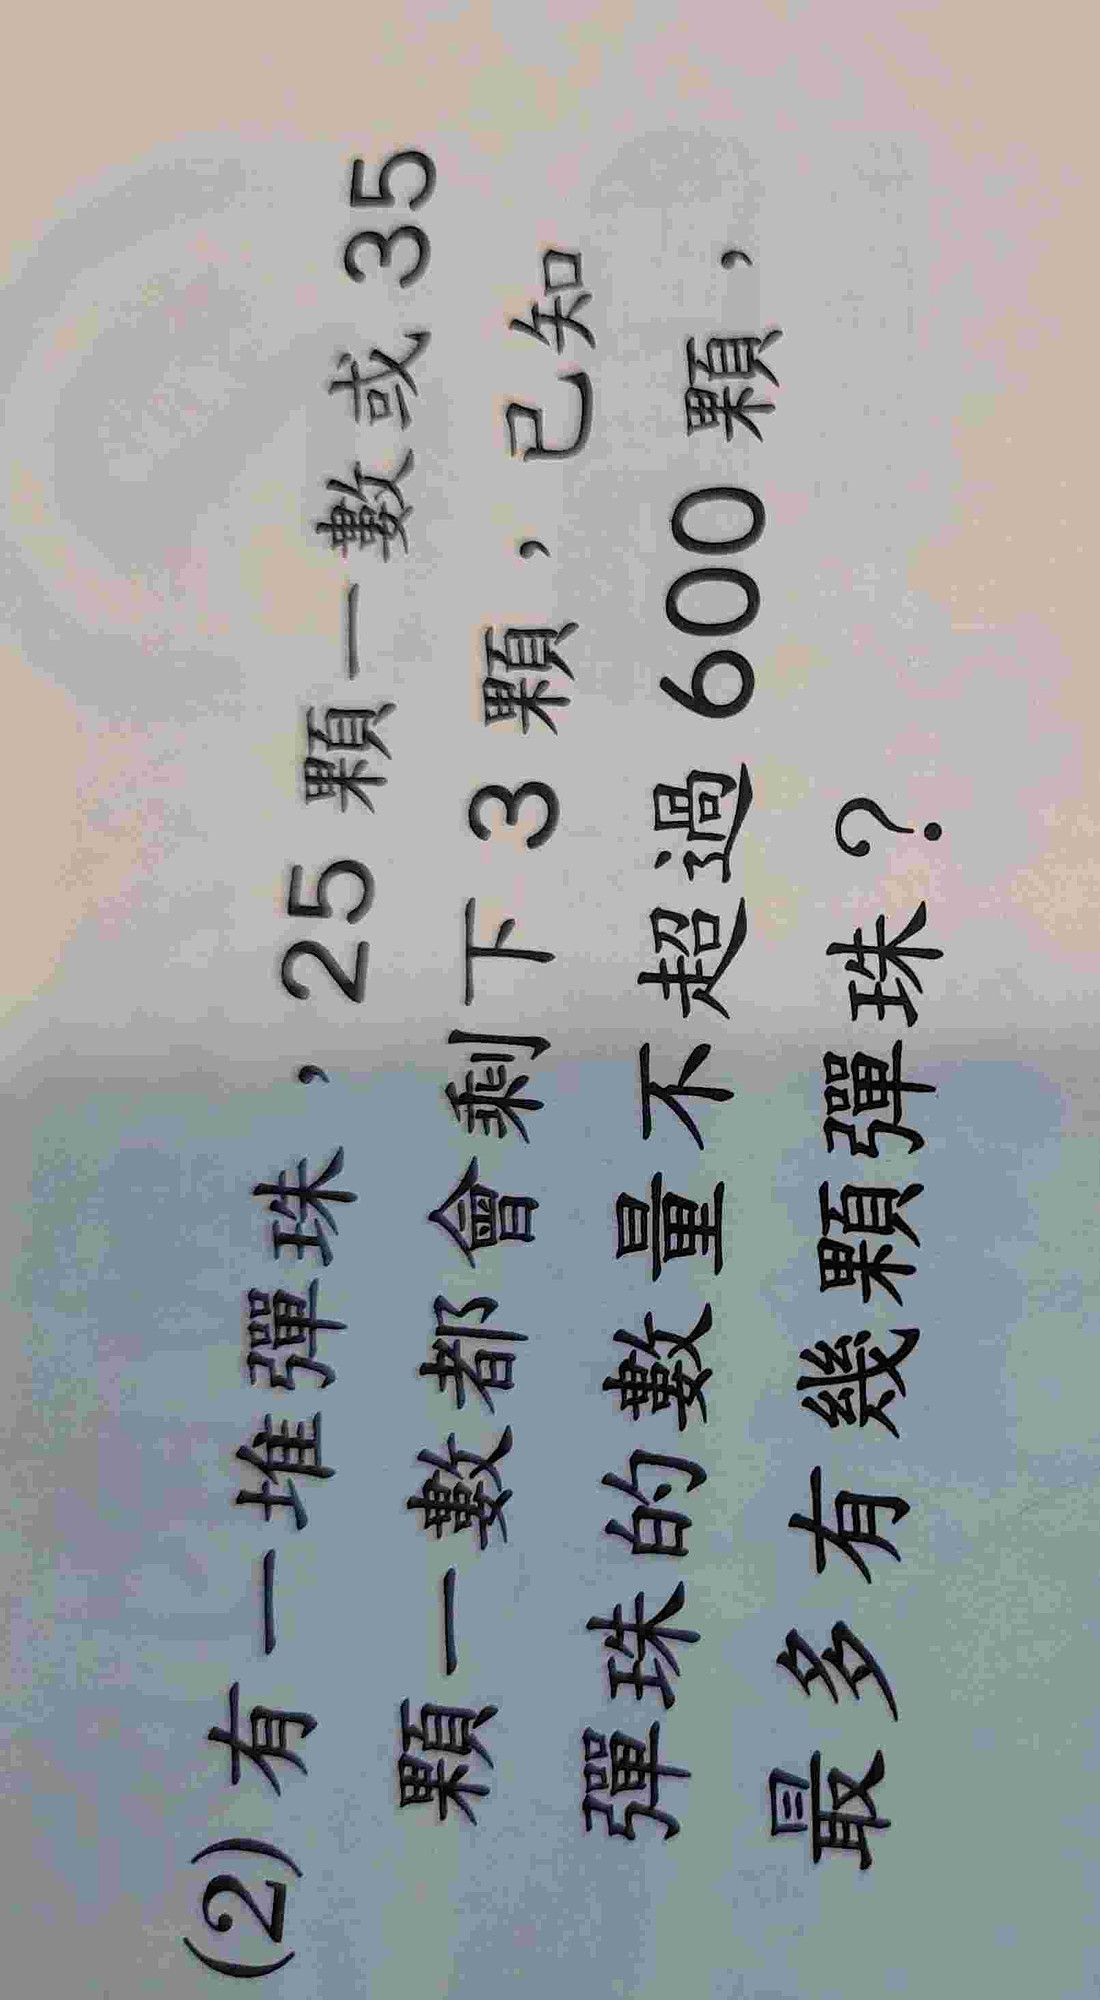 (2) 有一堆彈珠，25 顆一數或 35
顆一數都會剩下 3 顆，已知
彈珠的數量不超過 600 顆，
最多有幾顆彈珠？